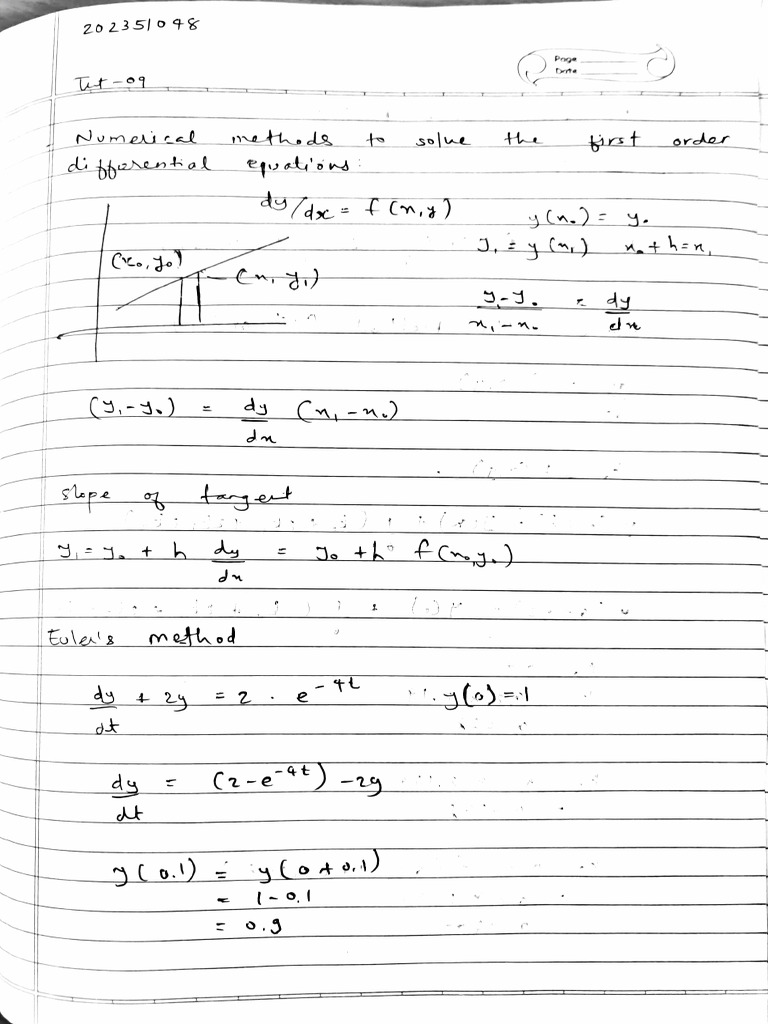 202351048
Page
Date
Tut-09
Numerical methods to solve the first order
differential equations:
dy/dx = f(x,y)    y(x₀) = y₀
y₁ = y(x₁)    x₀ + h = x₁
(x₀, y₀)
(x, y₁)
y₁ - y₀ / x₁ - x₀ = dy/dx
(y₁ - y₀) = dy/dx (x₁ - x₀)
slope of tangent
y₁ = y₀ + h dy/dx = y₀ + h f(x₀, y₀)
Euler's method
dy/dt + 2y = 2 · e^-4t    y(0) = 1
dy/dt = (2 - e^-4t) - 2y
y(0.1) = y(0 + 0.1)
= 1 - 0.1
= 0.9